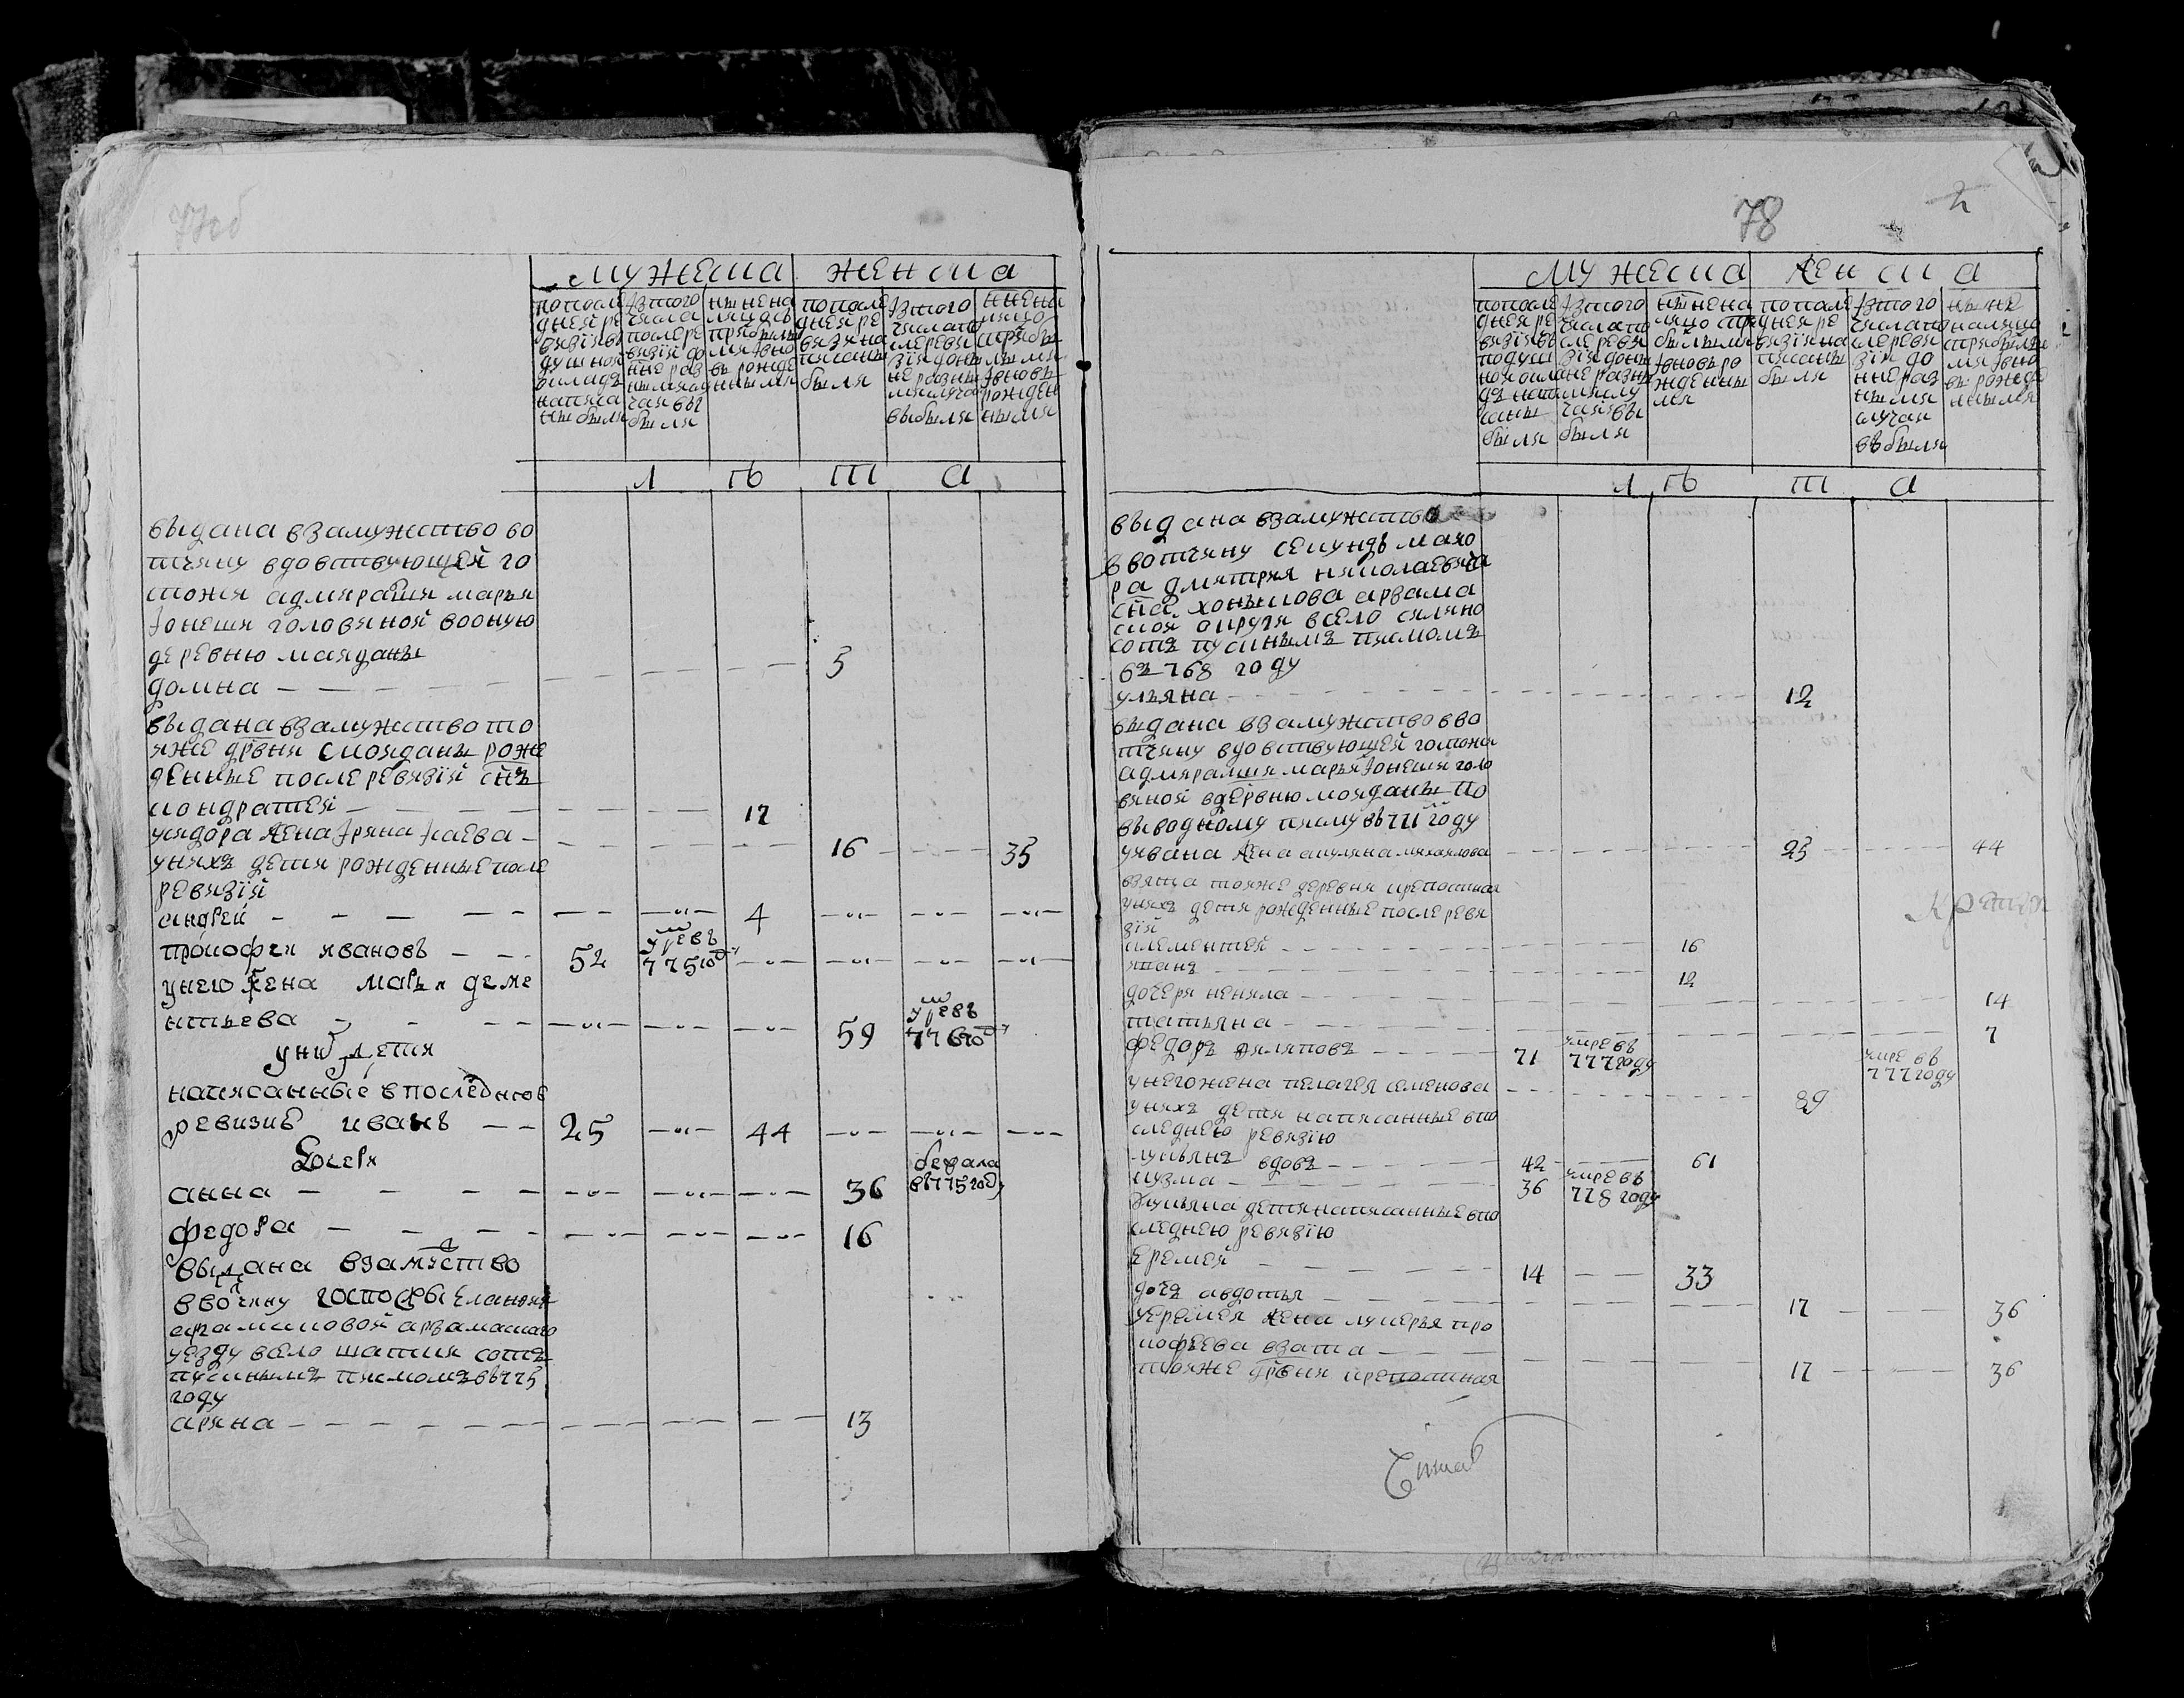 77об
мужеска женска
попосле
дней ре
визїи въ
душной
окладъ
написа
ны были
Изтого
числа
послере
визїи до
ннѣ раз
ными слу
чаи вы
были
ннѣ на
лицо съ
прибылы
ми Ивно
въ рожде
нными
попосле
дней ре
визїи на
писаны
были
Изтого
числапо
слереви
зїи доны
не разны
мислучаи
выбыли
ннѣ на
лицо
сприбы
лыми
Ивновь
рожден
ными
л ѣ т а
выдана взамужство во
тчину вдовствующей го
спожи адмиралши марьи
Ионешни головиной вооную
деревню маяданы
домна 5
выдана взамужство то
яже дрвни смояданы рож
денные после ревизїи снъ
кондратей 12
уисидора жена Ирина Исаева 16 35
униxъ дети рожденные после
ревизїи
андрей 4
прокофеи ивановъ 52 умре въ 775 год
унего жена марья деме
нтьева 59 умре въ 776 год
уних дети
написанные впоследнюю
ревизию иванъ 25 44
Дочери
анна 36 бежала въ 775 году
федора 16
выдана взамуство
ввочину господжи
арзамаского
уезду всело шатки сотъ
пускнымъ писмомъ въ 775
году
арина 13
78
мужеска женска
попосле
дней ре
визїи въ
подуш
ной окла
дъ напи
саны
были
Изтого
числапо
слереви
зїи доны
не разны
мислу
чаи вы
были
ннѣ на
лицо спри
былыми
Ивновь ро
жденны
ми
попосле
дней ре
визїи на
писаны
были
Изтого
числапо
слереви
зїи до
ннѣ раз
ными
случаи
выбыли
ны не
налицо
сприбылы
ми Ивно
вь рожде
нными
л ѣ т а
выдана взамужство
ввотчину секундъ маио
ра дмитрия николаевича
сна хоныкова арзама
ской округи всело
сотъ пускнымъ писмомъ
въ 768 году
ульяна 12
выдана взамужство вво
тчину вдовствующей госпожи
адмиралши марьи Ионешни голо
виной вдеревню мояданы по
выводному писму въ 771 году
уивана жена акулина михаилова 23 44
взята тояже деревни крепосная
униxъ дети рожденные после реви
зїи
клементей 16
ипатъ 12
дочери ненила 14
татьяна 7
федоръ филиповъ 71 умре въ 777 году
унегожена пелагея семенова 89 умре въ 777 году
униxъ дети написанные впо
следнею ревизїю
лукьянъ вдовъ 42 61
кузма 36 умре въ 778 году
улукьяна детинаписанные впо
следнею ревизїю
Еремей 14 33
дочь авдотья 17 36
уеремея жена лукерья про
кофьева взята
тояже дрвни крепосная 17 36